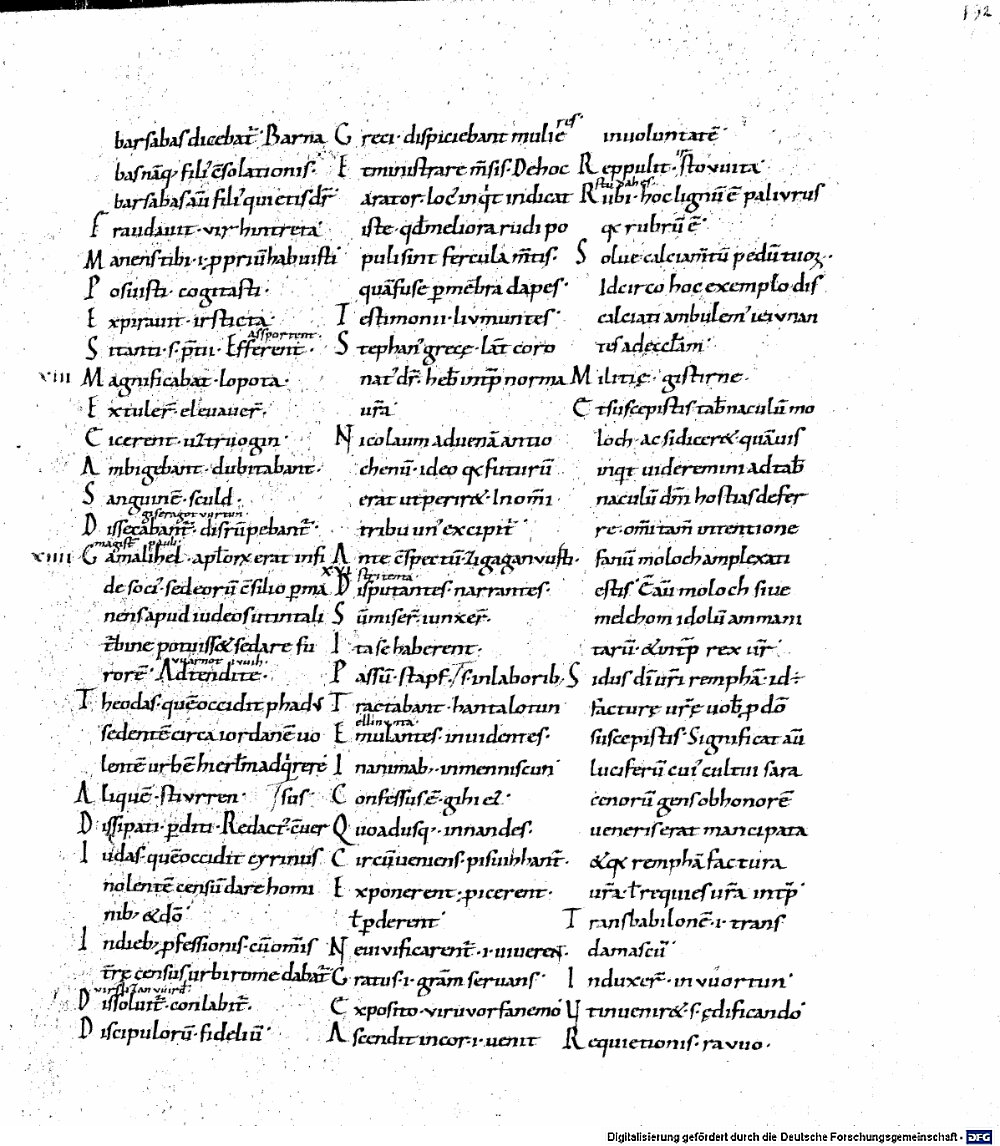 192
barsabas dicebat᷑· Barna
bas nāq; filiꝰ c̄solationis·
barsabas aū filiꝰ quietis dr̄
F raudauit· virhintreta
M anens tibi· i· ꝓpriū habuisti
P osuisti· cogitasti·
E xpirauit· irsticta·
assportent·
S itanti· s· p̄tii· Efferent·
xiii M agnificabat· lopota·
E xtuler̄· eleuauer̄·
C icerent· uztruogin·
A mbigebant· dubitabant·
S anguinē· sculd·
D issecabant᷑· disrūpebant᷑·
magist̄ pauli·
xiiii G amalihel· aplorꝫ erat infi
de sociꝰ· sed eorū c̄silio ꝑma
nens apud iudeos ut in tali
t̄bine potuiss& sedare fu
rorē· Adtendite·
T heodas· quē occidit phadꝰ
sedentē circa iordanē uo
lentē urbē hierl̄m adq̄rere
A liquē· stiurren· sus
D issipati· ꝑditi· Redactꝰ· ēuer
I udas· quē occidit cyrinus
nolentē censū dare homi
nibꝫ &dō·
I n dieb; ꝓfessionis· cū om̄is
t̄rę census urbi rome dabat᷑
D issoluit᷑· conlabit᷑·
D iscipulorū· fideliū·
res·
G reci· dispiciebant mulie
E t ministrare m̄sis· De hoc
arator· locꝰ inq̇t indicat
iste· qd̄ meliora rudi po
puli sint fercula m̄tis·
quā fuse ꝑ mēbra dapes·
T estimonii· liumuntes·
S tephanꝰ grecę· lat̄ coro
natꝰ dr̄· heb̄ int̄p norma
ur̄a·
N icolaum aduenā antio
chenū· ideo qꝫ futurū
erat ut perir& · In om̄i
tribu unꝰ excipit᷑·
A nte c̄spectū· zigaganvusti·
xvi D isputantes· narrantes·
S ūmiser̄· iunxer̄·
I ta se haberent·
P assū· stapf· / s· in laborib;
T ractabant· hantalotun
ellinunta·
E mulantes· inuidentes·
I nanimab;· inmenniscun·
C onfessus ē· gihiez·
Q uoadusq;· innandes·
C ircūueniens· pisuihhant᷑·
E xponerent· ꝓicerent·
t̄ ꝑderent·
N e uiuificarent᷑· i· uiuerent·
G ratus· i· gr̄am seruans·
E xposito· viruvorfanemo
A scendit in cor· i· uenit
in uoluntatē·
R eppulit· stovuita·
R ubi· hoc lignū ē palivrus
qꝫ rubrū ē·
S olue calciam̄tū pedū tuoꝝ·
Idcirco hoc exemplo dis
calciati ambulem̄
tis ad ęccl̄am·
M ilitię· gistirne·
E t suscepistis tab̄naculū mo
loch· ac si dicer& · quāuis
inqt̄ uideremini ad tab̄
naculū dn̄i hostias defer
re· om̄i tam̄ intentione
fanū moloch amplexati
estis· Eāū moloch siue
melchom idolū ammani
tarū· &int̄p rex ur̄·
S idus dī ur̄i remphā· id÷
facturę ur̄ę uob̄ ꝓ dō
suscepistis· Significat aū
luciferū cuiꝰ cultui sara
cenorū gens ob honorē
ueneris erat mancipata
&qꝫ remphā factura
ur̄a· t̄ requies ur̄a int̄p·
T rans babilonē· i· trans
damascū·
I nduxer̄· in vuortun·
U t inuenir& · s· ędificando·
R equietionis· ravuo·
Digitalisierung gefördert durch die Deutsche Forschungsgemeinschaft - DFG